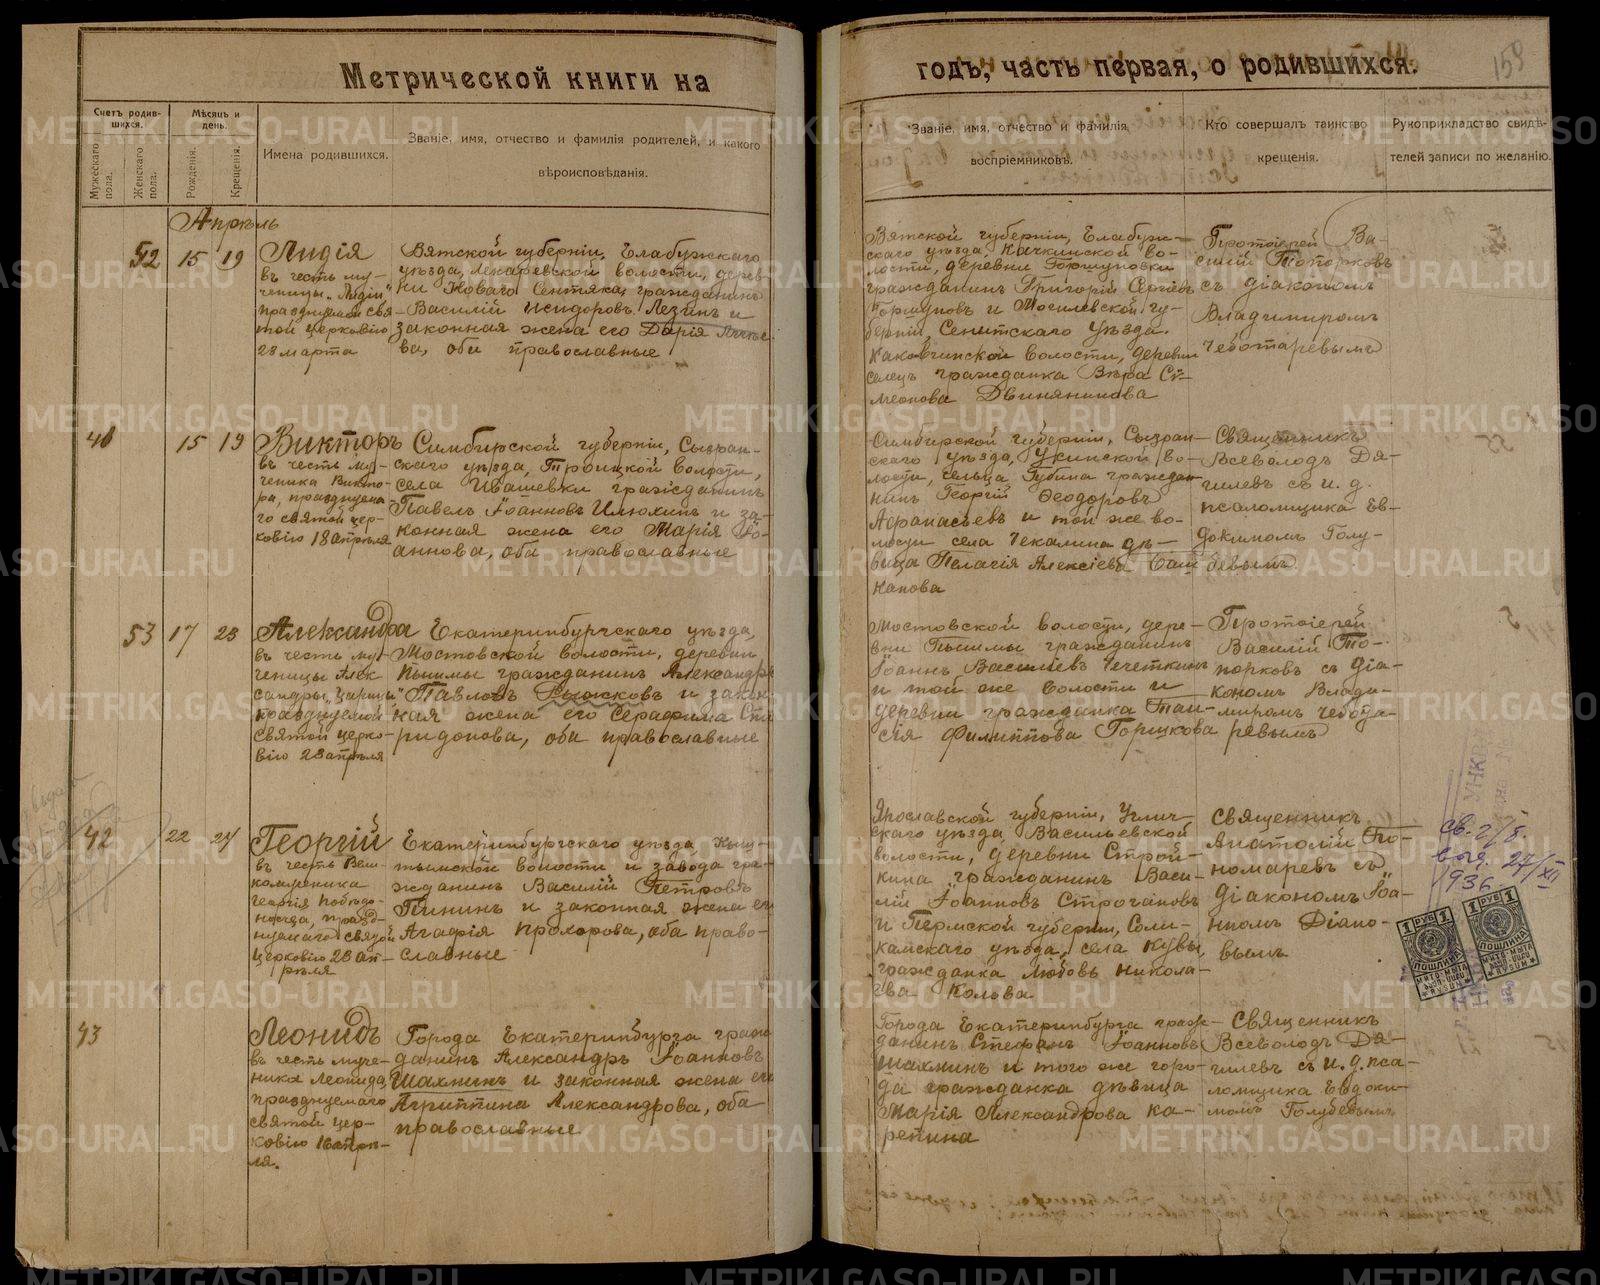 Метрической книги на
годъ, часть первая, о родившихся.
159
Счетъ родив-
шихся.
Мѣсяцъ и
день.
Мужескаго
пола.
Женскаго
пола.
Рожденія.
Крещенія.
Имена родившихся.
Званіе, имя, отчество и фамилія родителей, и какого
вѣроисповѣданія.
Званіе, имя, отчество и фамилія
воспріемниковъ.
Кто совершалъ таинство
крещенія.
Рукоприкладство свидѣ-
телей записи по желанію.
Апрѣль
52 15 19
Лидія
въ честь му-
ченицы „Лидіи"
празднуемой свя-
той церковію
23 марта
Вятской губерніи, Елабужскаго
уѣзда, Лекаревской волости, дерев-
ни Новаго Сентяка, гражданинъ
Василій Исидоровъ Лезинъ и
законная жена его Дарія
ва, оби православные
Вятской губерніи, Елабуж-
скаго уѣзда, Качкинской во-
лости, деревни
гражданинъ Григорій Сергіевъ
Горшуновъ и Могилевской гу-
берніи, Сенитскаго уѣзда.
волости, деревни
селецъ гражданка Вѣра Си-
меонова Двинянинова
Протоіерей Ва-
силій Топорковъ
съ діакономъ
Владимиромъ
Чеботаревымъ
41 15 19
Викторъ
въ честь му-
ченика Викто-
ра, празднуема-
го святой цер-
ковію 18 апрѣля
Симбирской губерніи, Сызран-
скаго уѣзда, Троицкой волости,
села Ивашевки гражданинъ
Павелъ Іоанновъ Илюхинъ и за-
конная жена его Марія Іо-
аннова, оба православные
Симбирской губерніи, Сызран-
скаго уѣзда, Усинской во-
лости, сельца Губина граждан-
нинъ Георгій Ѳеодоровъ
Аѳанасьевъ и той же во-
лости села Чекалина дѣ-
вица Пелагія Алексіева Баш
канова
Священникъ
Всеволодъ Дя-
гилевъ съ и. д.
псаломщика Ев-
докимомъ Голу-
бевымъ
53 17 23
Александра
въ честь му-
ченицы Алек
сандры „Царицы"
празднуемой
святой церко-
вію 23 апрѣля
Екатеринбургскаго уѣзда,
Мостовской волости, деревни
Пышмы гражданинъ Александръ
Павловъ Рыжковъ и закон
ная жена его Серафима Спи
ридонова, оба православные
Мостовской волости, дере-
вни Пышмы гражданинъ
Іоаннъ Васильевъ Чечеткинъ
и той же волости и
деревни гражданка Таи-
сія Филиппова Горшкова
Протоіерей
Василій То-
порковъ съ діа-
кономъ Влади-
миромъ Чебота-
ревымъ
42 22 24
Георгій
въ честь Вели-
комученика
Георгія Побѣдо-
носца, празд-
нуемаго святой
церковію 23 ап-
рѣля
Екатеринбургскаго уѣзда, Кыш-
тымской волости и завода гра-
жданинъ Василій Петровъ
Пининъ и законная жена его
Агафія Прохорова, оба право-
славные
Ярославской губерніи, Углич-
скаго уѣзда, Васильевской
волости, деревни Строй-
кина гражданинъ Васи-
лій Іоанновъ Строгановъ
и Пермской губерніи, Соли-
камскаго уѣзда, села Кувы,
гражданка Любовь Никола-
ева Колова
Священникъ
Анатолій По-
номаревъ съ
діакономъ Іоа-
нномъ Діано-
вымъ
св. 2/8.
27/XII
936
1 РУБ 1
ПОШЛИНА
1 РУБ 1
ПОШЛИНА
43
Леонидъ
въ честь муче-
ника Леонида,
празднуемаго
святой цер-
ковію 16 апрѣ-
ля.
Города Екатеринбурга граж
данинъ Александръ Іоанновъ
Шахминъ и законная жена его
Агриппина Александрова, оба
православные
Города Екатеринбурга граж-
данинъ Стефанъ Іоанновъ
Шахминъ и того же горо-
да гражданка дѣвица
Марія Александрова Ка-
репина
Священникъ
Всеволодъ Дя-
гилевъ съ и. д. пса-
ломщика Евдоки-
момъ Голубевымъ
METRIKI.GASO-URAL.RU